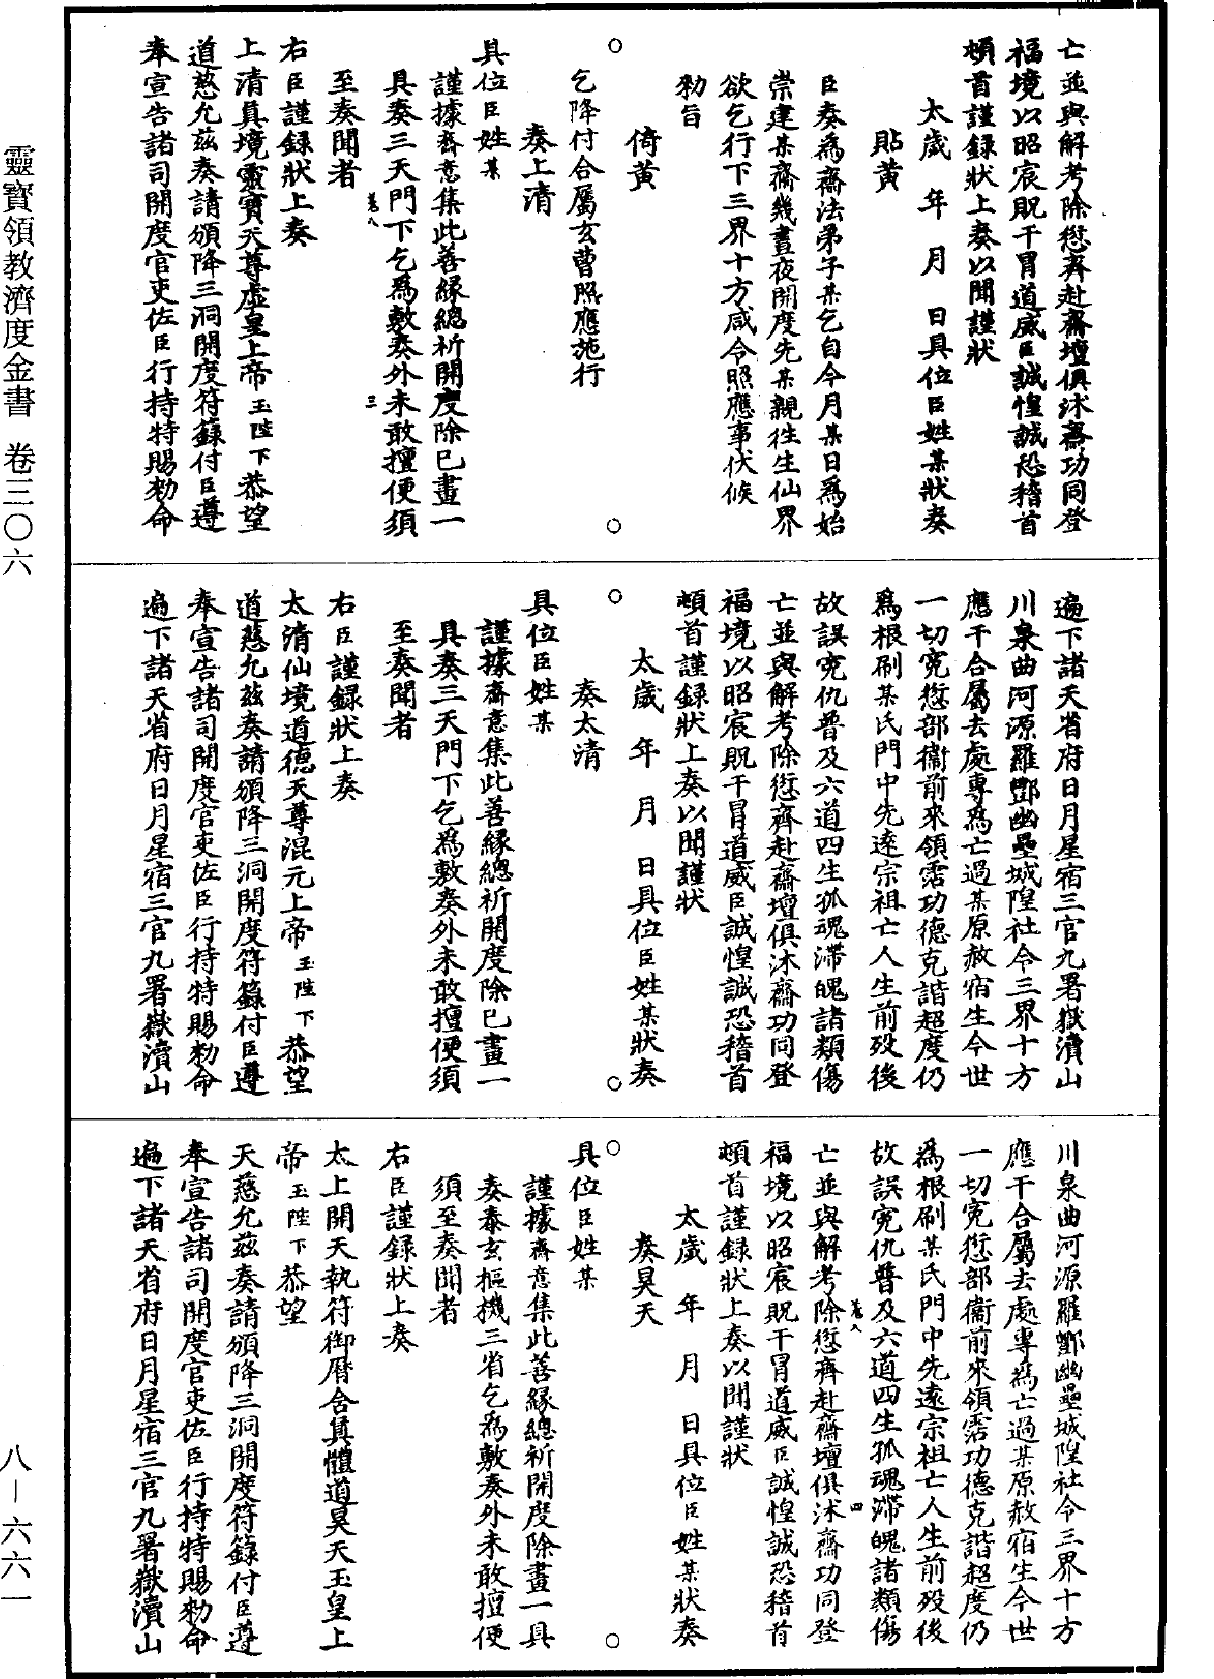 亡並與解考除愆齊赴齋壇俱沐齋功同登
福境以昭宸貺干冒道威臣誠惶誠恐稽首
頓首謹録狀上奏以聞謹狀
太歲 年 月 日具位臣姓某狀奏
貼黄
臣奏爲齋法弟子某乞自今月某日爲始
崇建某齋幾晝夜開度先某親徃生仙界
欲乞行下三界十方咸令照應事伏候
勑旨
倚黄
○乞降付合屬玄曹照應施行○
奏上清
具位臣姓某
謹據齋意集此善縁總祈開度除已畫一
具奏三天門下乞爲敷奏外未敢擅便須
卷八 三
至奏聞者
右臣謹録狀上奏
上清真境靈寳天尊虚皇上帝玉陛下恭望
道慈允兹奏請頒降三洞開度符籙付臣遵
奉宣告諸司開度官吏佐臣行持特賜勑命
遍下諸天省府日月星宿三官九署嶽瀆山
川泉曲河源羅酆幽壘城隍社令三界十方
應干合屬去處專爲亡過某原赦宿生今世
一切寃愆部衞前來領霑功德克諧超度仍
爲根刷某氏門中先逺宗祖亡人生前殁後
故誤寃仇普及六道四生孤魂滯魄諸類傷
亡並與解考除愆齊赴齋壇俱沐齋功同登
福境以昭宸貺干冒道威臣誠惶誠恐稽首
頓首謹録狀上奏以聞謹狀
○太歲 年 月 日具位臣姓某狀奏○
奏太清
具位臣姓某
謹據齋意集此善縁總祈開度除已畫一
具奏三天門下乞爲敷奏外未敢擅便須
至奏聞者
右臣謹録狀上奏
太清仙境道德天尊混元上帝玉陛下恭望
道慈允兹奏請頒降三洞開度符籙付臣遵
奉宣告諸司開度官吏佐臣行持特賜勑命
遍下諸天省府日月星宿三官九署嶽瀆山
川泉曲河源羅酆幽壘城隍社令三界十方
應干合屬去處專爲亡過某原赦宿生今世
一切寃愆部衞前來領霑功德克諧超度仍
爲根刷某氏門中先逺宗祖亡人生前殁後
故誤寃仇普及六道四生孤魂滯魄諸類傷
卷八 四
亡並與解考除愆齊赴齋壇俱沐齋功同登
福境以昭宸貺干冒道威臣誠惶誠恐稽首
頓首謹録狀上奏以聞謹狀
太歲 年 月 日具位臣姓某狀奏
奏昊天
○ ○
具位臣姓某
謹據齋意集此善縁總祈開度除畫一具
奏泰玄樞機三省乞爲敷奏外未敢擅便
須至奏聞者
右臣謹録狀上奏
太上開天執符御曆含真體道昊天玉皇上
帝玉陛下恭望
天慈允兹奏請頒降三洞開度符籙付臣遵
奉宣告諸司開度官吏佐臣行持特賜勑命
遍下諸天省府日月星宿三官九署嶽瀆山
靈寶領教濟度金書 卷三〇六
八－六六一